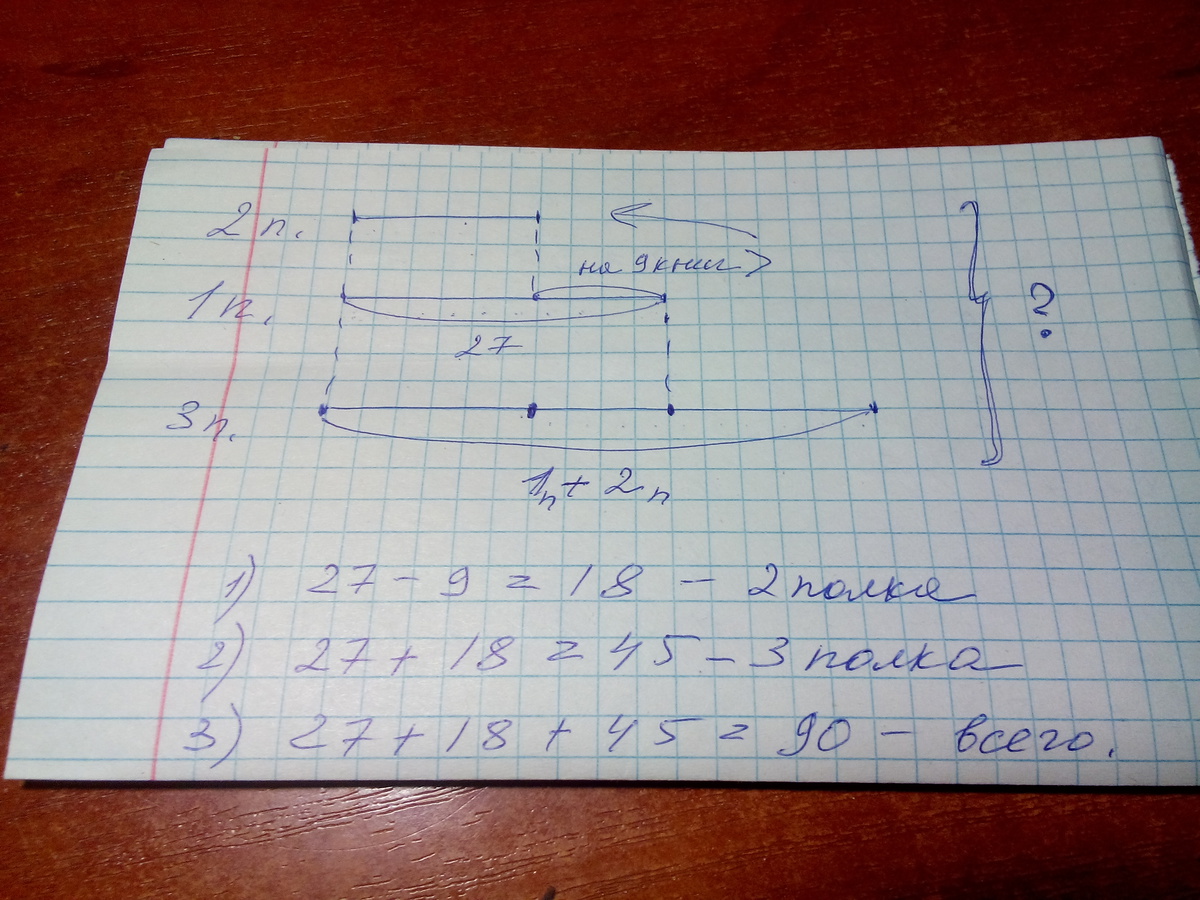 2 п.
на 9 книг >
1 п.
27
?
3 п.
1п + 2п
1) 27 - 9 = 18 - 2 полка
2) 27 + 18 = 45 - 3 полка
3) 27 + 18 + 45 = 90 - всего.